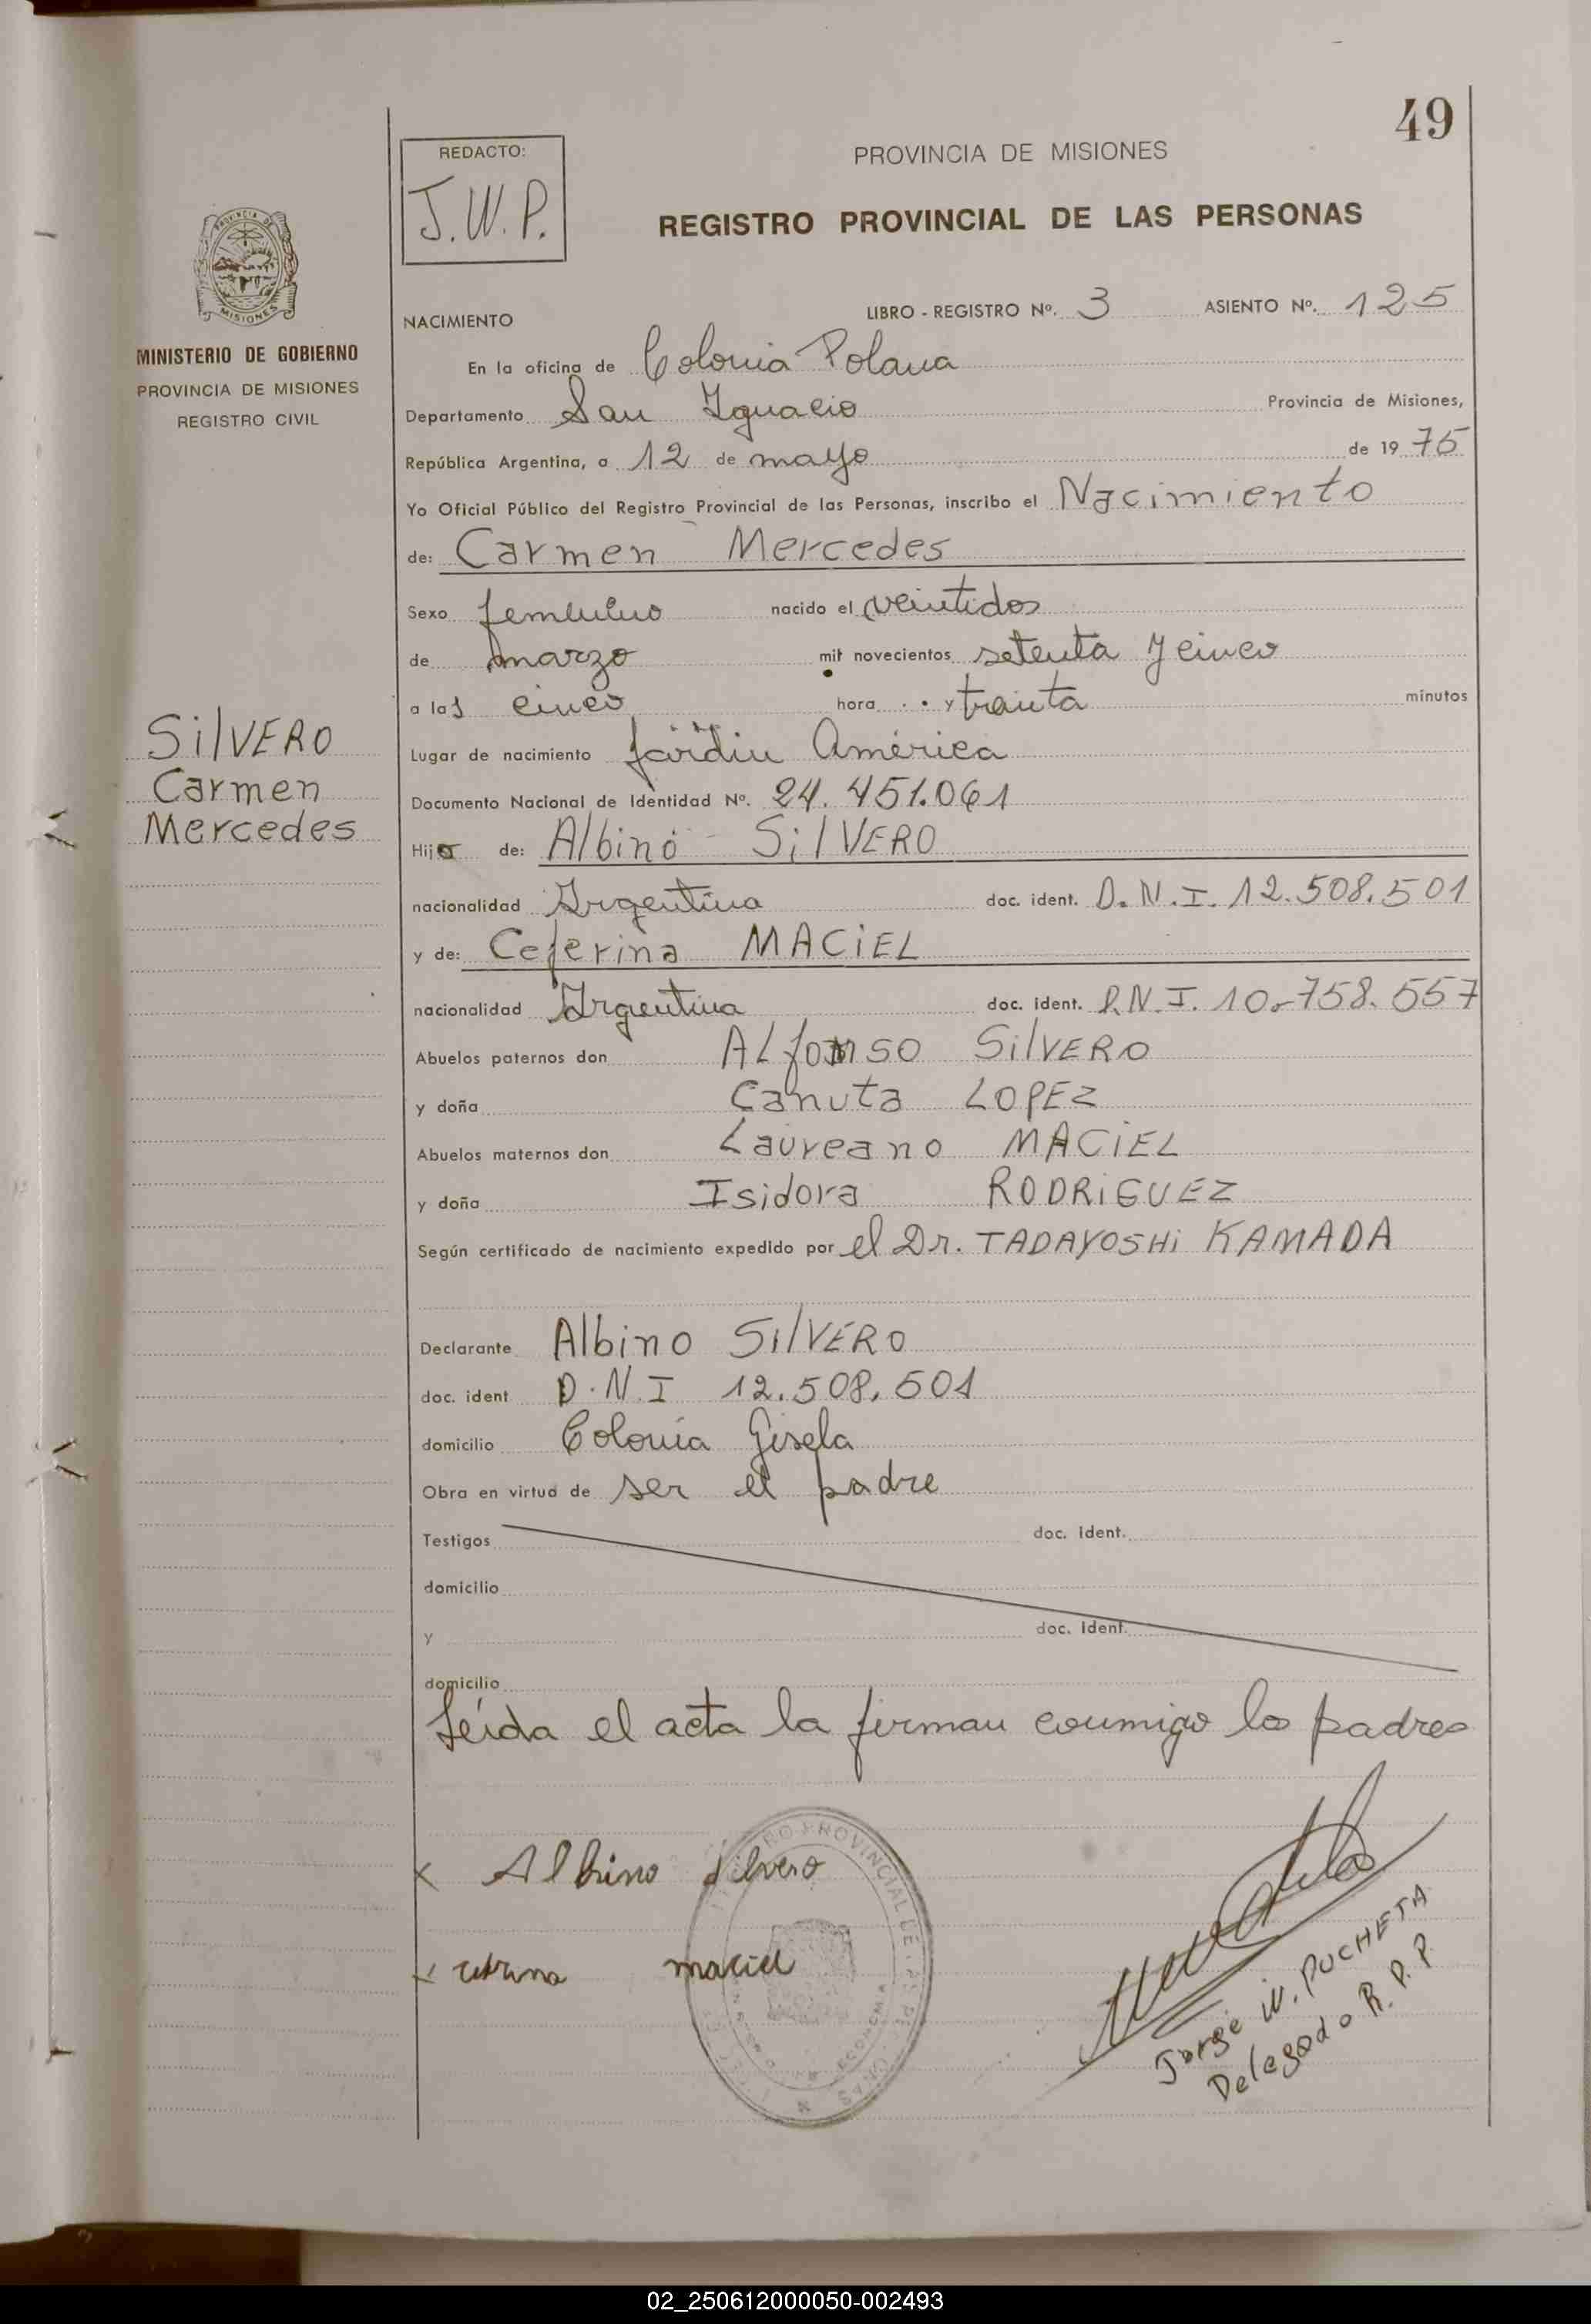 49
REDACTO:
J.W.P.
PROVINCIA DE MISIONES
REGISTRO PROVINCIAL DE LAS PERSONAS
PROVINCIA DE
MISIONES
MINISTERIO DE GOBIERNO
PROVINCIA DE MISIONES
REGISTRO CIVIL
NACIMIENTO LIBRO - REGISTRO Nº. 3 ASIENTO Nº. 125
En la oficina de Colonia Polana
Departamento San Ignacio Provincia de Misiones,
República Argentina, a 12 de mayo de 1975
Yo Oficial Público del Registro Provincial de las Personas, inscribo el Nacimiento
de: Carmen Mercedes
Sexo femenino nacido el veintidos
de marzo mil novecientos setenta y cinco
a las cinco hora y treinta minutos
SilVERO
Carmen
Mercedes
Lugar de nacimiento Jardin América
Documento Nacional de Identidad Nº. 24.451.061
Hija de: Albino SilVERO
nacionalidad Argentina doc. ident. D.N.I. 12.508.501
y de: Ceferina MACiEL
nacionalidad Argentina doc. ident. D.N.I. 10.758.557
Abuelos paternos don ALfonso SilVERO
y doña Canuta LOPEZ
Abuelos maternos don Laureano MACiEL
y doña Isidora RODRiGUEZ
Según certificado de nacimiento expedido por el Dr. TADAYOSHi KAMADA
Declarante Albino SilVERO
doc. ident D.N.I 12.508.501
domicilio Colonia Gisela
Obra en virtud de ser el padre
Testigos doc. ident.
domicilio
y doc. ident.
domicilio
Leída el acta la firman conmigo los padres
x Albino Silvero
x maciel
Jorge W. PUCHETA
Delegado R.P.P.
02_250612000050-002493